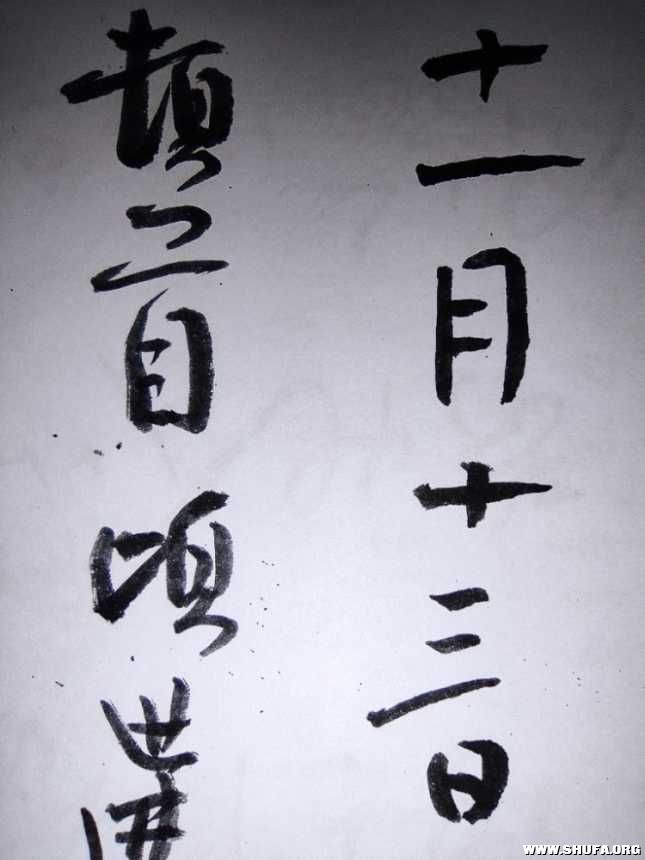 十一月十三日
頓首頃遘
WWW.SHUFA.ORG